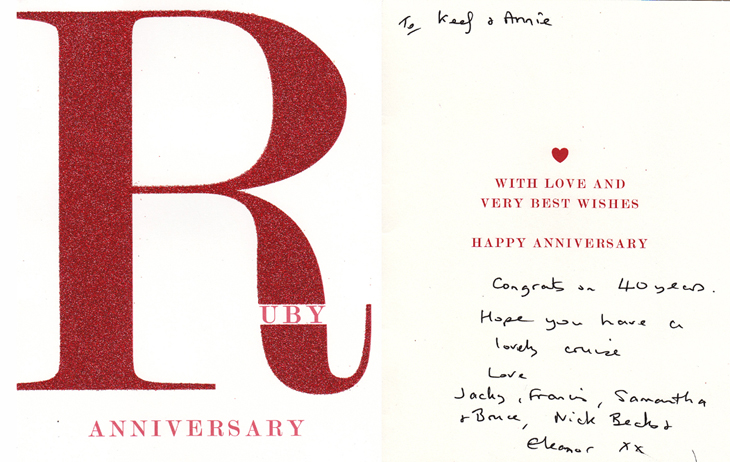 R
UBY
ANNIVERSARY
To Keef & Annie
WITH LOVE AND
VERY BEST WISHES
HAPPY ANNIVERSARY
Congrats on 40 years.
Hope you have a
lovely cruise
Love
Jacky, Francis, Samantha
& Bruce, Nick Becks &
Eleanor xx